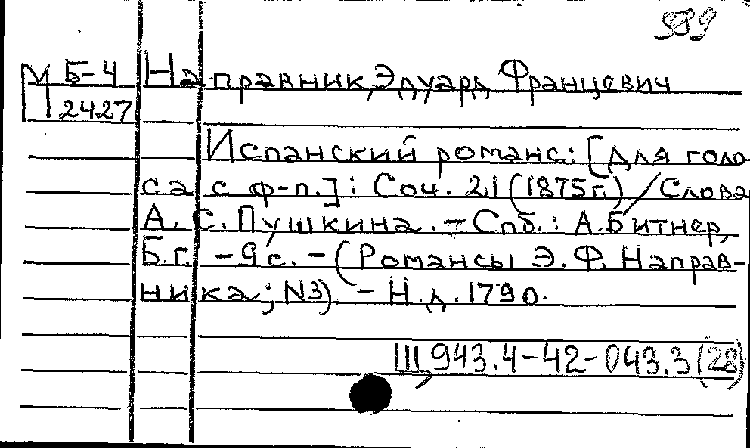 599
М Б-4 Направник, Эдуард Францевич
2427
Испанский романс: [Для голо
са с ф-п.]: Соч. 21 (1875г.) / Слова
А. С. Пушкина. - Спб.: А. Битнер,
Б.г. - 9с. - (Романсы Э. Ф. Направ-
ника; N3). - Н.д. 1790.
Щ943.4-42-043.3(28)